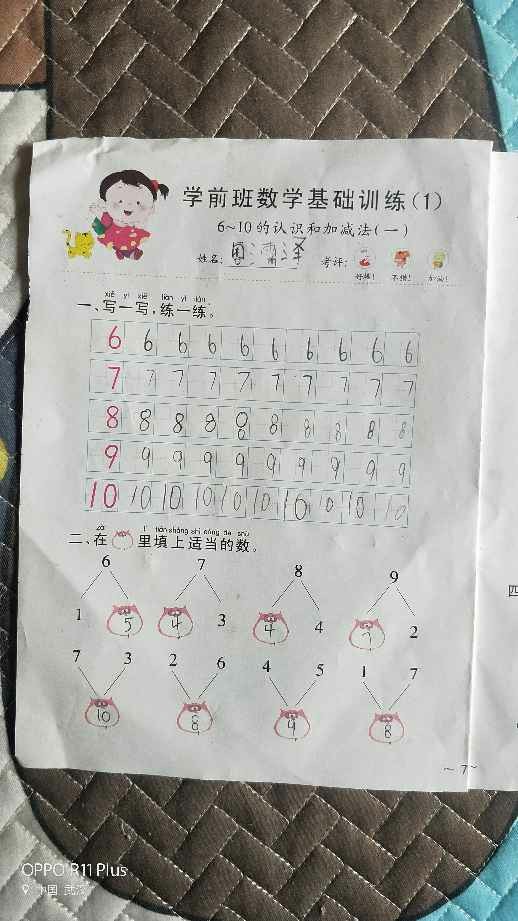 学前班数学基础训练(1)
6~10的认识和加减法(一)
姓名: 泽 考评: 好棒! 不错! 加油!
xiě yì xiě liàn yí liàn
一、写一写,练一练。
6 6 6 6 6 6 6 6 6 6
7 7 7 7 7 7 7 7 7 7
8 8 8 8 8 8 8 8 8 8
9 9 9 9 9 9 9 9 9 9
10 10 10 10 10 10 10 10 10 10
zài lǐ tián shàng shì dàng de shù
二、在 里填上适当的数。
6 7 8 9
1 5 4 3 4 4 7 2
7 3 2 6 4 5 1 7
10 8 9 8
~ 7 ~
四
OPPO R11 Plus
中国 武汉